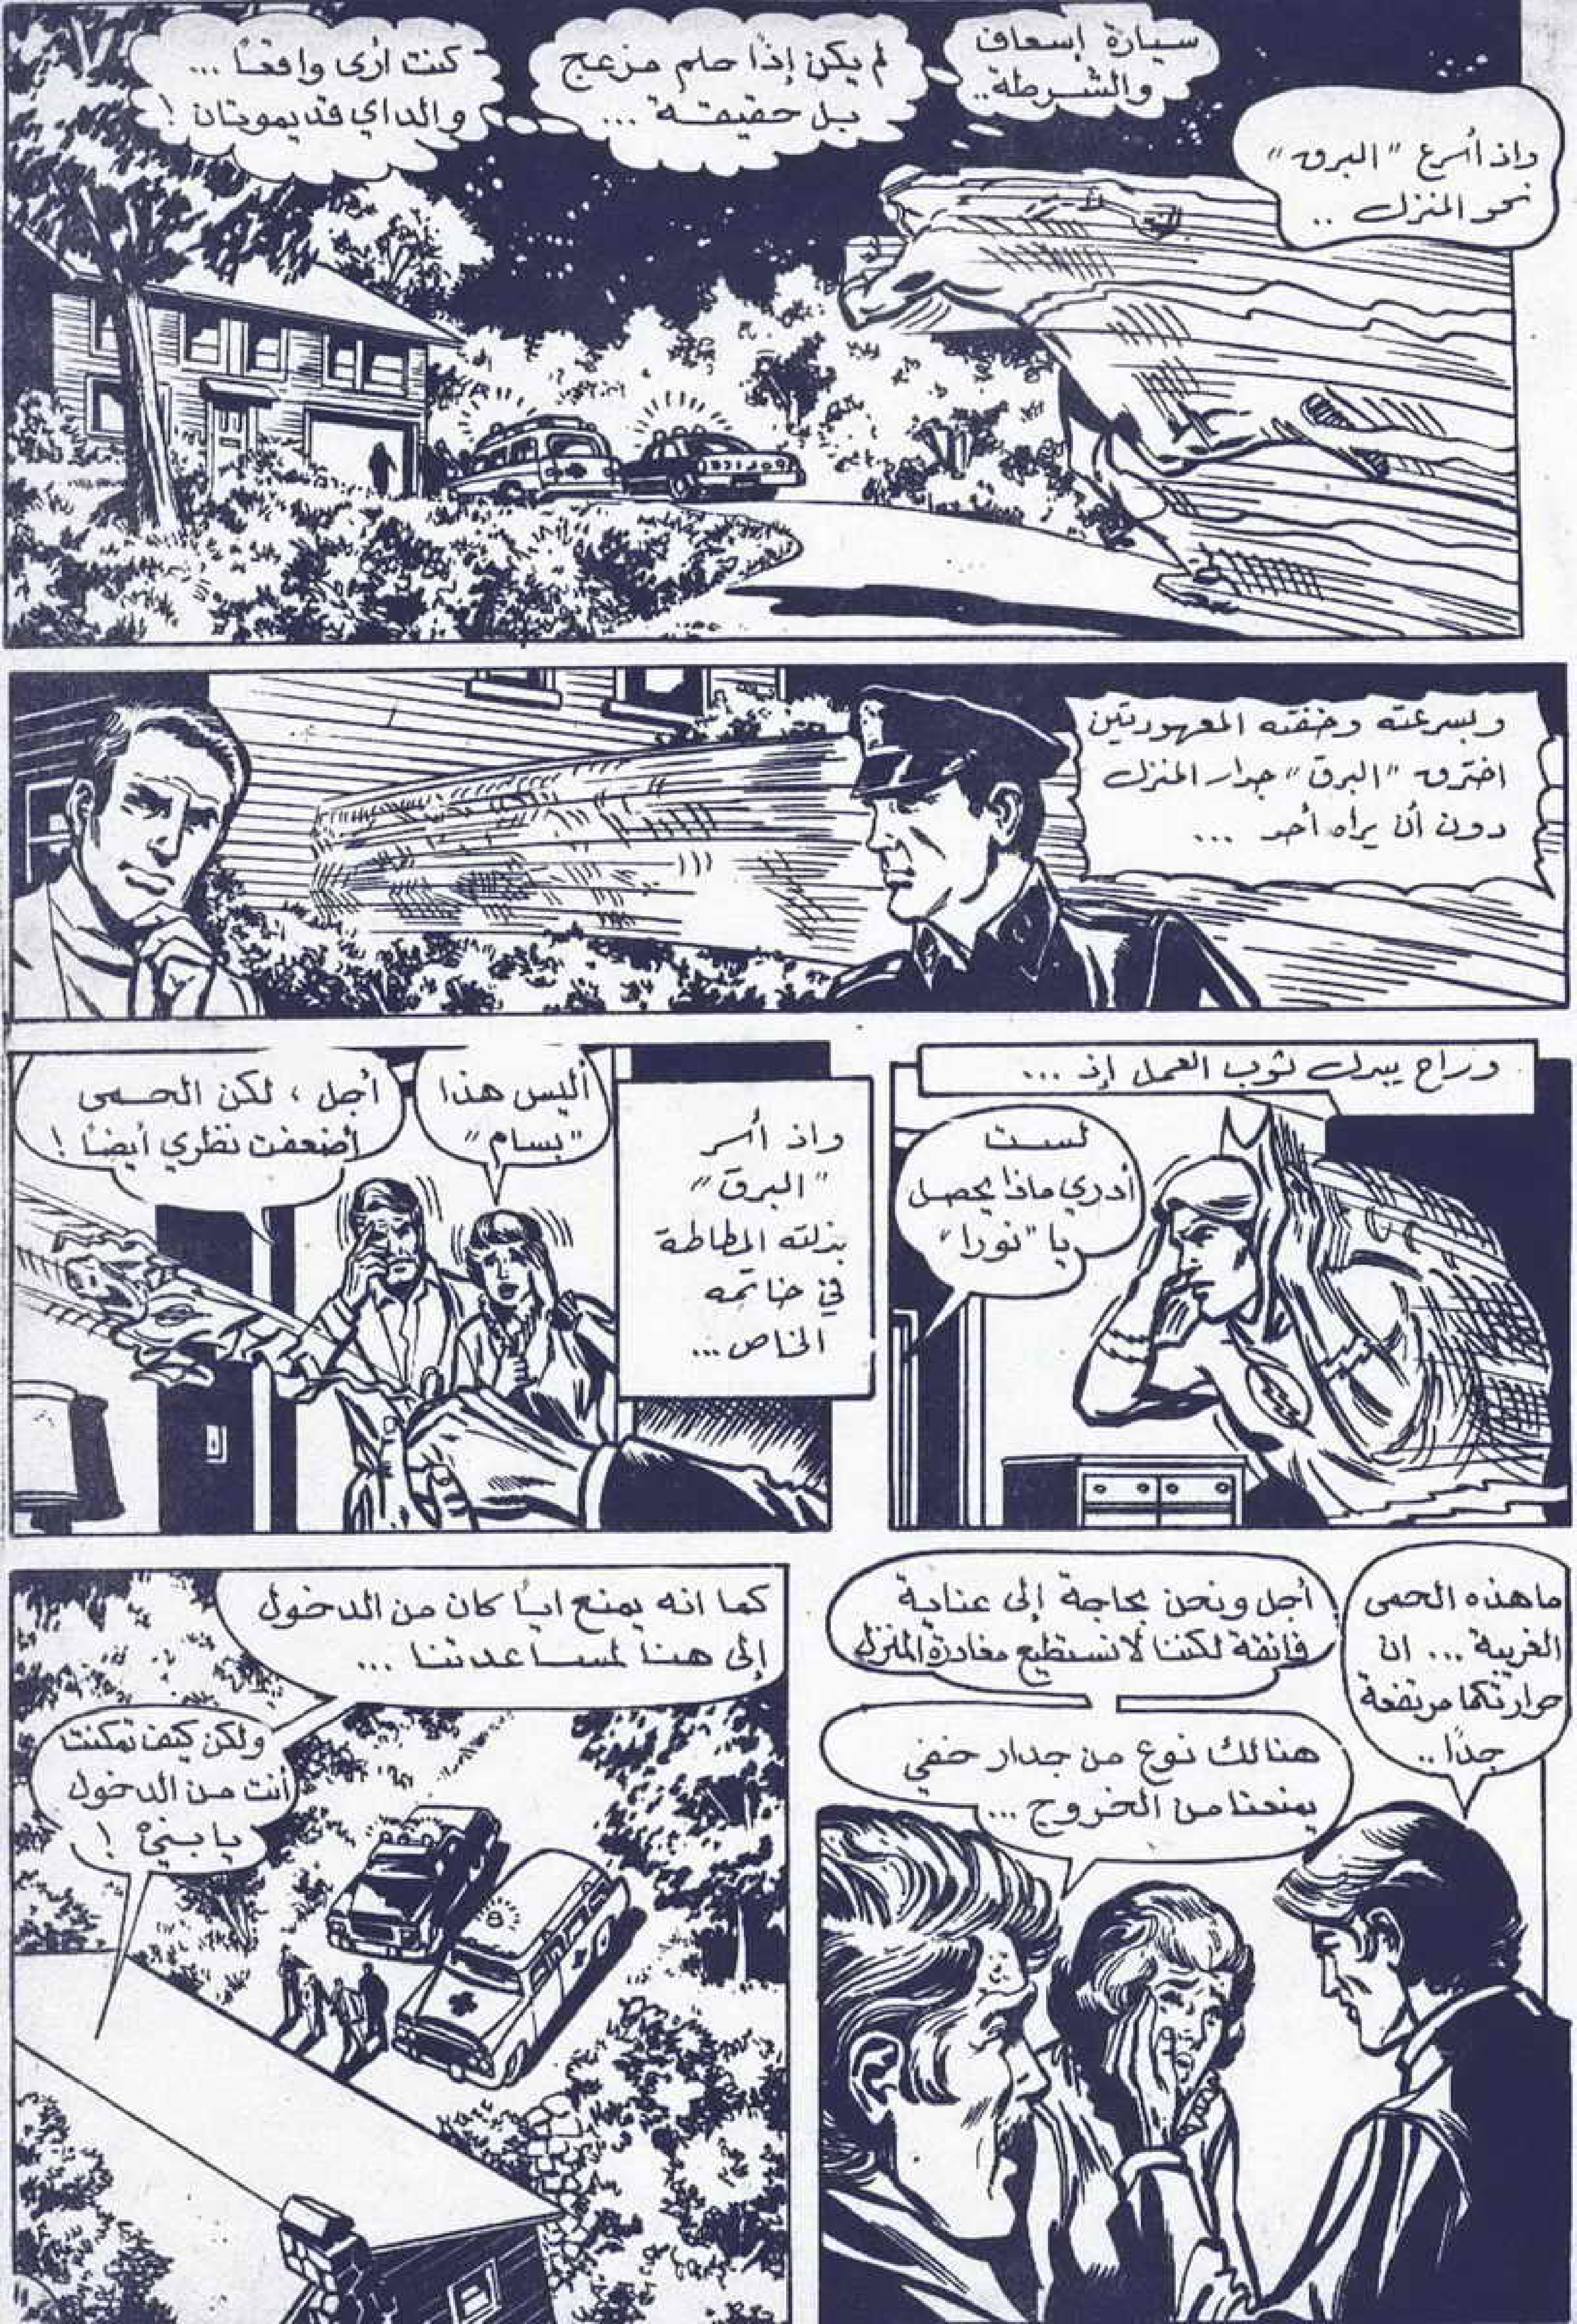 واذ أسرع "البرق"
نحو المنزل ..
سيارة إسعاف
والشرطة..
لم يكن إذًا حلم مزعج
بل حقيقة ...
كنت أرى واقعًا ...
والداي قد يموتان !
وبسرعته وخفته المعهودتين
اخترق "البرق" جدار المنزل
دون أن يراه أحد ...
وراح يبدل ثوب العمل إذ ...
لست
أدري ماذا يحصل
يا "نورا"
واذ أسر
"البرق"
بذلته المطاطة
في خاتمه
الخاص ...
أليس هذا
"بسام"
أجل ، لكن الحمى
أضعفت نظري أيضًا !
ما هذه الحمى
الغريبة ... ان
حرارتكما مرتفعة
جدًا ..
أجل ونحن بحاجة إلى عناية
فائقة لكننا لا نستطيع مغادرة المنزل
هنالك نوع من جدار خفي
يمنعنا من الخروج ...
كما انه يمنع ايًا كان من الدخول
إلى هنا لمساعدتنا ...
ولكن كيف تمكنت
أنت من الدخول
يا بنيّ !